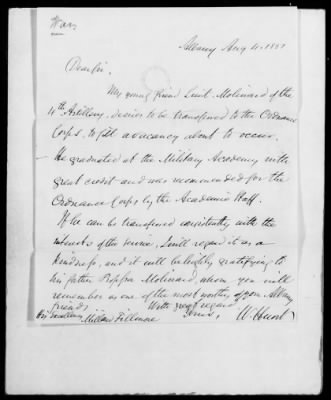 War
Albany Aug 4. 1851
Dear Sir.
My young friend Lieut. Molinard of the
4th Artillery, desires to be transferred to the Ordnance
Corps, to fill a vacancy about to occur.
He graduated at the Military Academy with
great credit and was recommended for the
Ordnance Corps by the Academic Staff.
If he can be transferred consistently with the
interests of the service, I will regard it as a
kindness, and it will be highly gratifying to
his father Professor Molinard whom you will
remember as one of the most worthy of your Albany
friends
With great regard
His Excellency Millard Fillmore
Yours, W. Hunt